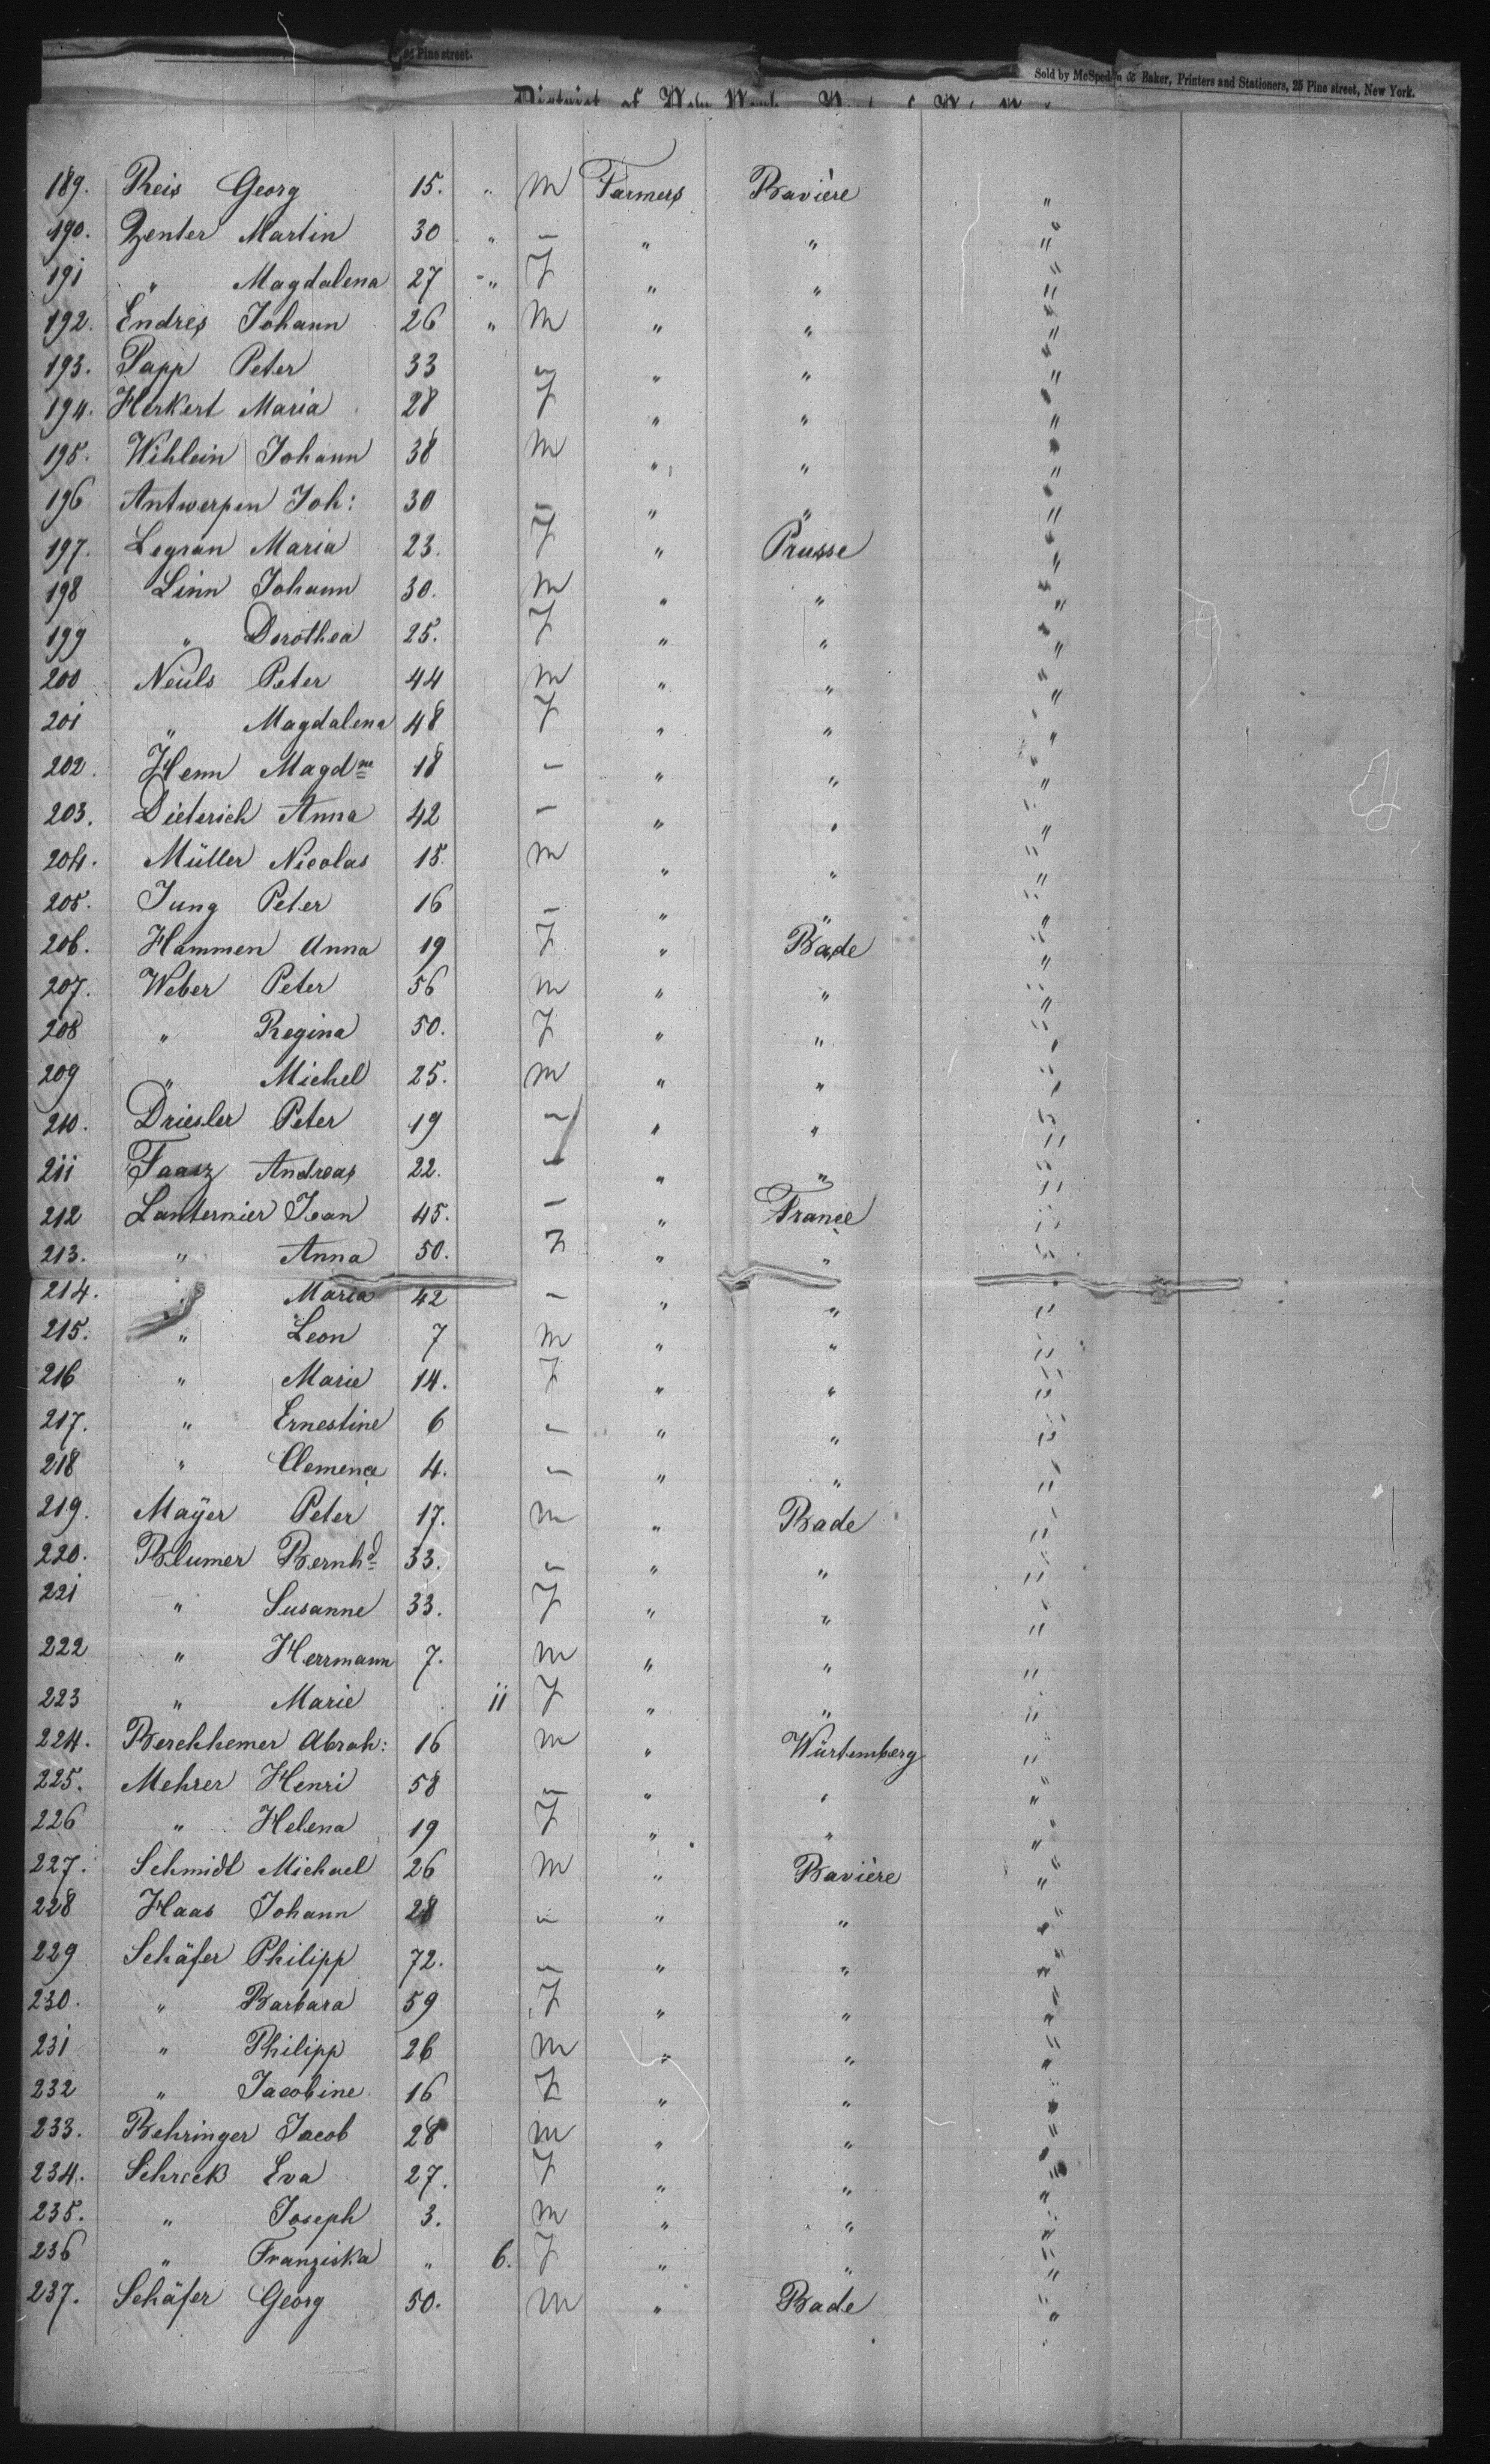 25 Pine street.
Sold by McSpedon & Baker, Printers and Stationers, 25 Pine street, New York.
District of New York
189. Reis Georg 15. " M Farmers Bavière "
190. Zenter Martin 30 " – " " "
191 " Magdalena 27 " F " " "
192. Endres Johann 26 " M " " "
193. Papp Peter 33 – " " "
194. Herkert Maria 28 F " " "
195. Wihlein Johann 38 M " " "
196 Antwerpen Joh: 30 – " " "
197. Legran Maria 23. F " Prusse "
198 Linn Johann 30. M " " "
199 " Dorothea 25. F " " "
200 Neuls Peter 44 M " " "
201 " Magdalena 48 F " " "
202. Henn Magdne 18 – " " "
203. Dieterich Anna 42 – " " "
204. Müller Nicolas 15. M " " "
205. Jung Peter 16 – " " "
206. Hammen Anna 19 F " Bade "
207. Weber Peter 56 M " " "
208 " Regina 50. F " " "
209 " Michel 25. M " " "
210. Driesler Peter 19 – " " "
211 Faasz Andreas 22. – " " "
212 Lanternier Jean 45. – " France "
213. " Anna 50. F " " "
214. " Maria 42 – " " "
215. " Leon 7 M " " "
216 " Marie 14. F " " "
217. " Ernestine 6 – " " "
218 " Clemence 4. – " " "
219. Mayer Peter 17. M " Bade "
220. Blumer Bernhd 33. – " " "
221 " Susanne 33. F " " "
222 " Herrmann 7. M " " "
223 " Marie 11 F " " "
224. Berckhemer Abrah: 16 M " Würtemberg "
225. Mehrer Henri 58 – " " "
226 " Helena 19 F " " "
227. Schmidt Michael 26 M " Bavière "
228 Haas Johann 28 – " " "
229 Schäfer Philipp 72. – " " "
230. " Barbara 59 F " " "
231 " Philipp 26 M " " "
232 " Jacobine 16 F " " "
233. Behringer Jacob 28 M " " "
234. Schreck Eva 27. F " " "
235. " Joseph 3. M " " "
236 " Franziska " 6. F " " "
237. Schäfer Georg 50. M " Bade "